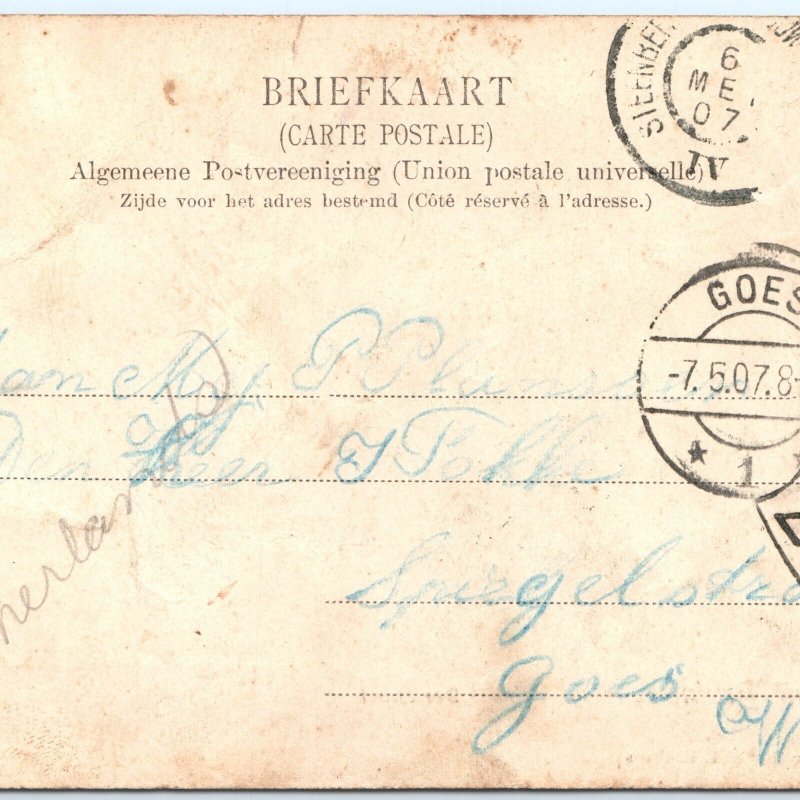 BRIEFKAART
(CARTE POSTALE)
Algemeene Postvereeniging (Union postale universelle)
Zijde voor het adres bestemd (Côté réservé à l'adresse.)
6
ME
07
IV
GOES
-7.5.07.8-
* 1
an Mej P
Den Heer J Fokke
Spiegelstra
Goes